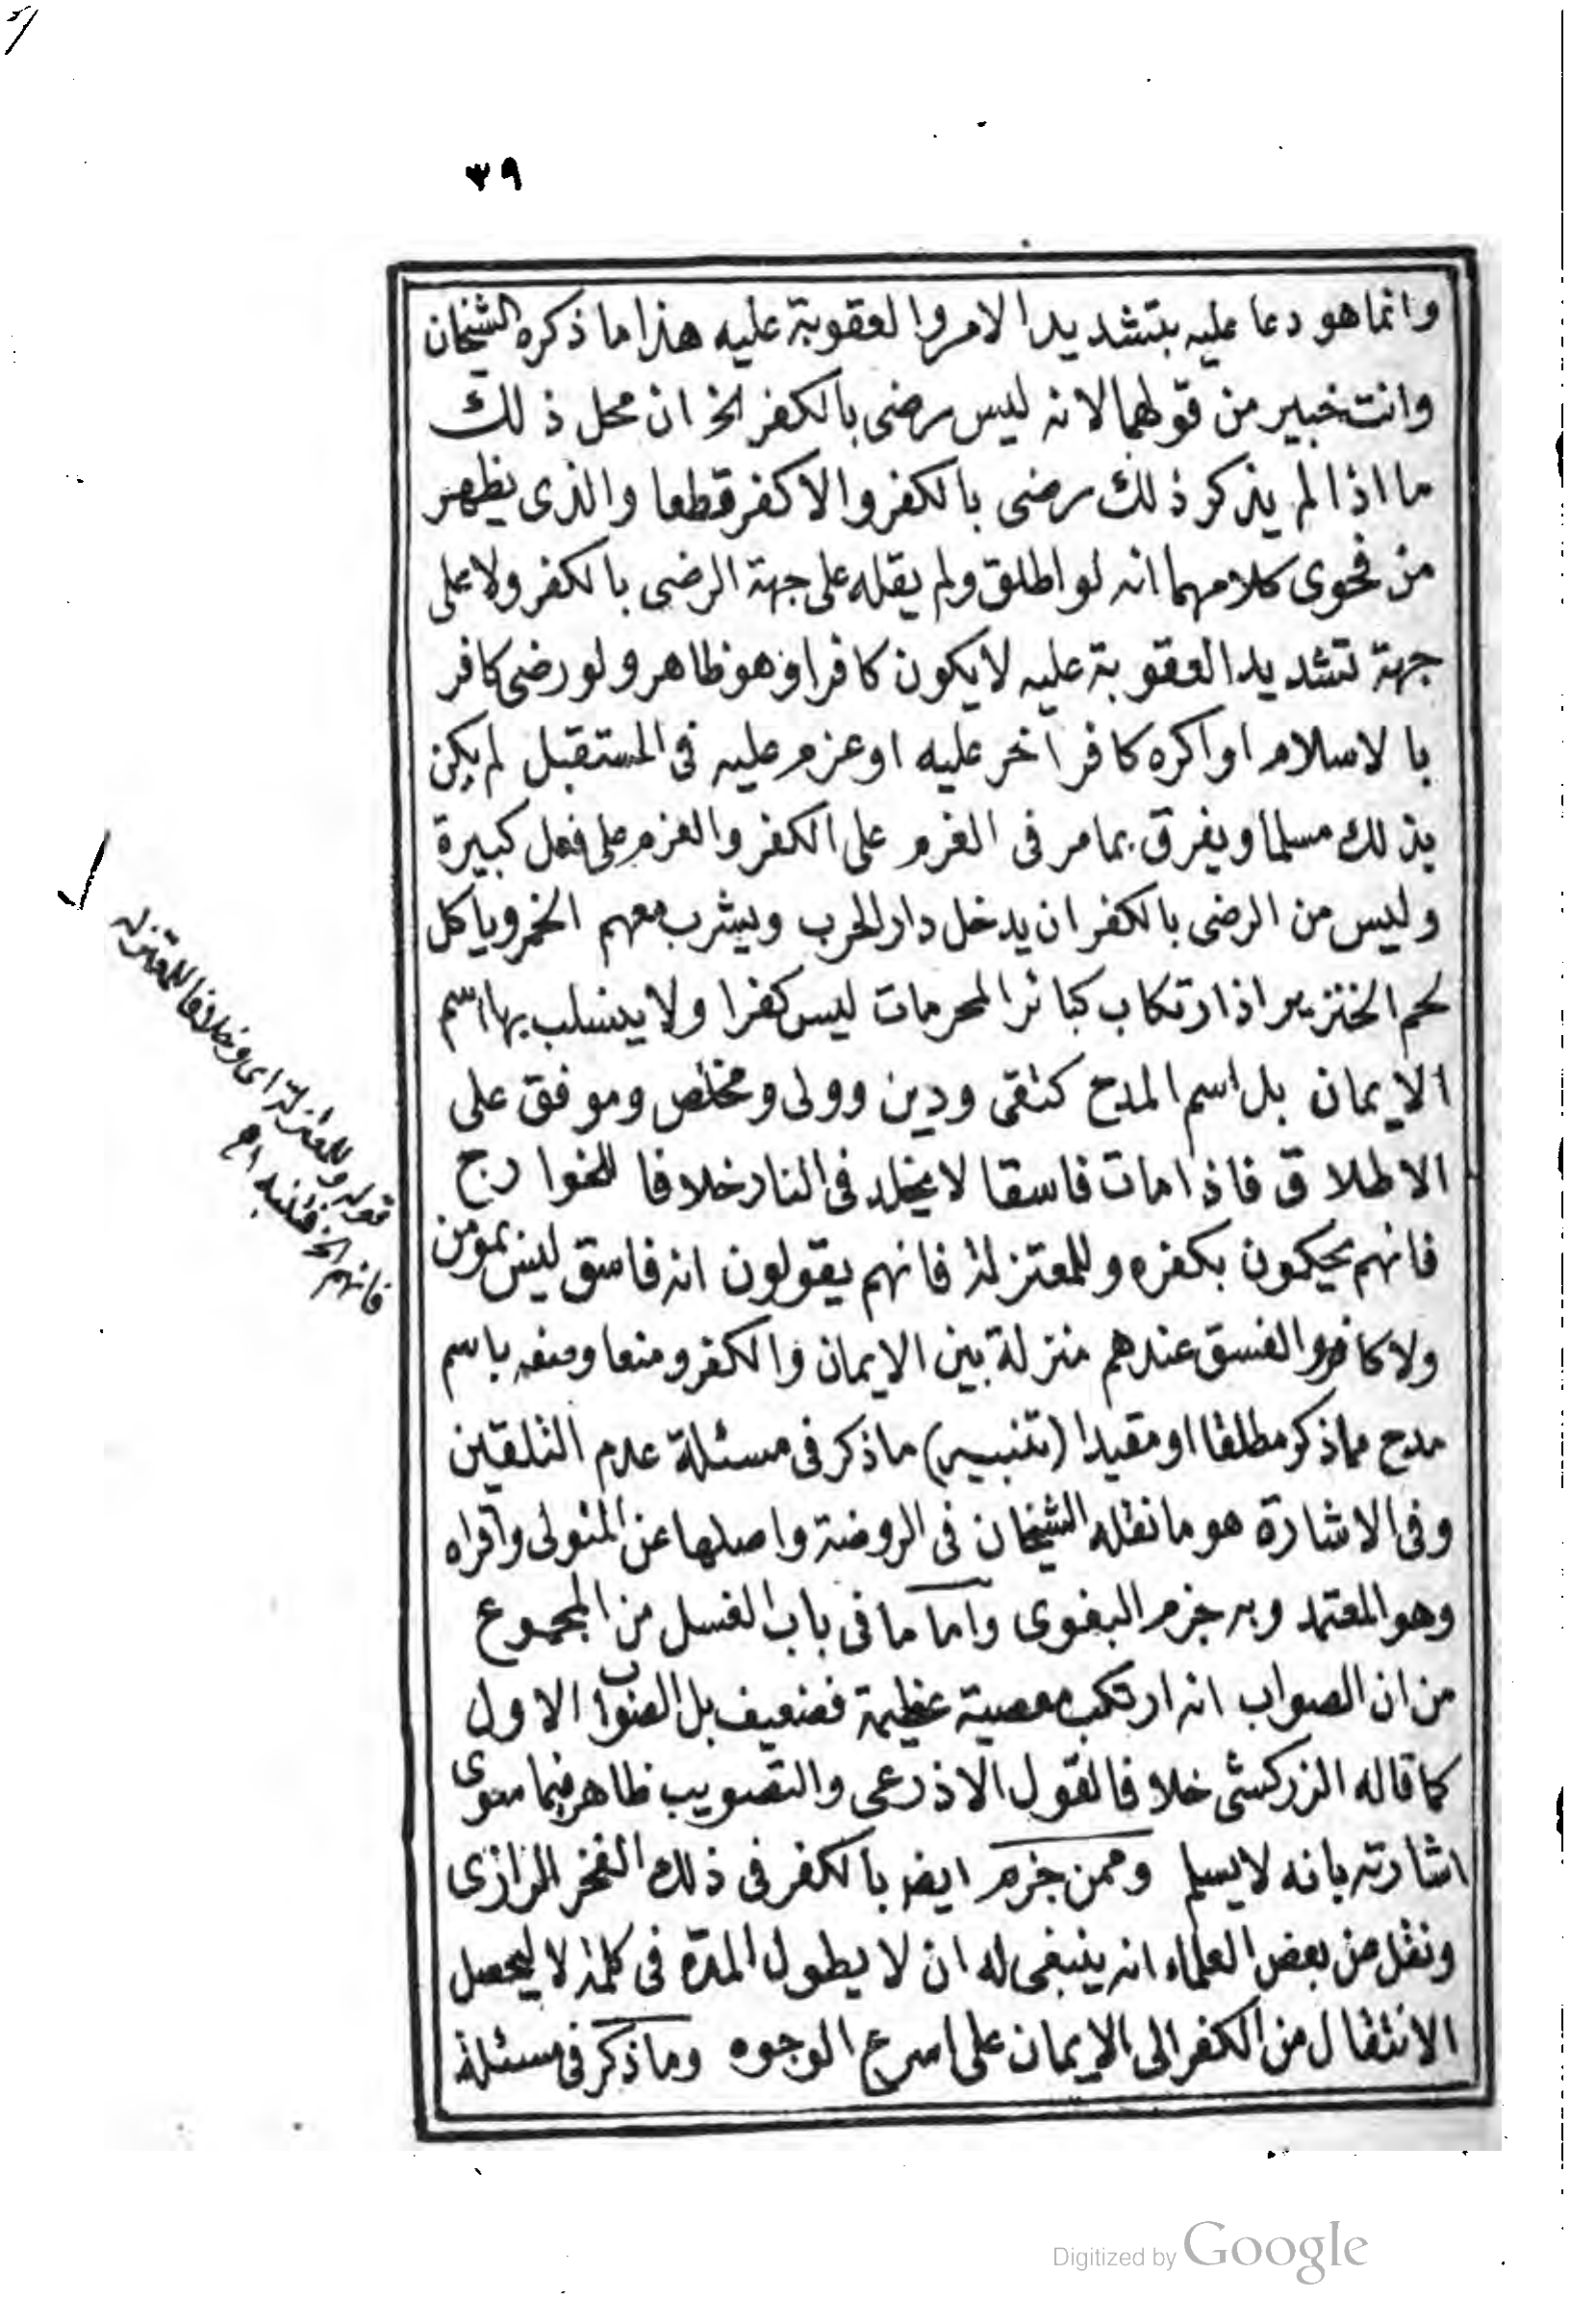 ٣٩
وانما هو دعا عليه بتشديد الامر والعقوبة عليه هذا ما ذكره الشيخان
وانت خبير من قولهما لانه ليس رضى بالكفر الخ ان محل ذلك
ما اذا لم يذكر ذلك رضى بالكفر والا كفر قطعا والذى يظهر
من فحوى كلامهما انه لو اطلق ولم يقله على جهة الرضى بالكفر ولا على
جهة تشديد العقوبة عليه لا يكون كافرا وهو ظاهر ولو رضى كافر
بالاسلام او اكره كافر آخر عليه او عزم عليه فى المستقبل لم يكن
بذلك مسلما ويفرق بما مر فى العزم على الكفر والعزم على فعل كبيرة
وليس من الرضى بالكفر ان يدخل دار الحرب ويشرب معهم الخمر وياكل
لحم الخنزير اذ ارتكاب كبائر المحرمات ليس كفرا ولا ينسلب بها اسم
الايمان بل اسم المدح كتقى ودين وولى ومخلص وموفق على
الاطلاق فاذا مات فاسقا لا يخلد فى النار خلافا للخوارج
فانهم يحكمون بكفره وللمعتزلة فانهم يقولون انه فاسق ليس بمومن
ولا كافر والفسق عندهم منزلة بين الايمان والكفر ومنعا وصفه باسم
مدح مما ذكر مطلقا او مقيدا (تنبيه) ما ذكر فى مسئلة عدم التلقين
وفى الاشارة هو ما نقله الشيخان فى الروضة واصلها عن المتولى واقراه
وهو المعتمد وبه جزم البغوى واما ما فى باب الغسل من المجموع
من ان الصواب انه ارتكب معصية عظيمة فضعيف بل الصواب الاول
كما قاله الزركشى خلافا لقول الاذرعى والتصويب ظاهر فيما سوى
اشارته بانه لا يسلم وممن جزم ايضا بالكفر فى ذلك الفخر الرازى
ونقل من بعض العلماء انه ينبغى له ان لا يطول المدة فى كلمة لا ليحصل
الانتقال من الكفر الى الايمان على اسرع الوجوه وما ذكر فى مسئلة
قوله وللمعتزلة اى وخلافا للمعتزلة
فانهم الخ فتنبه اه
Digitized by Google